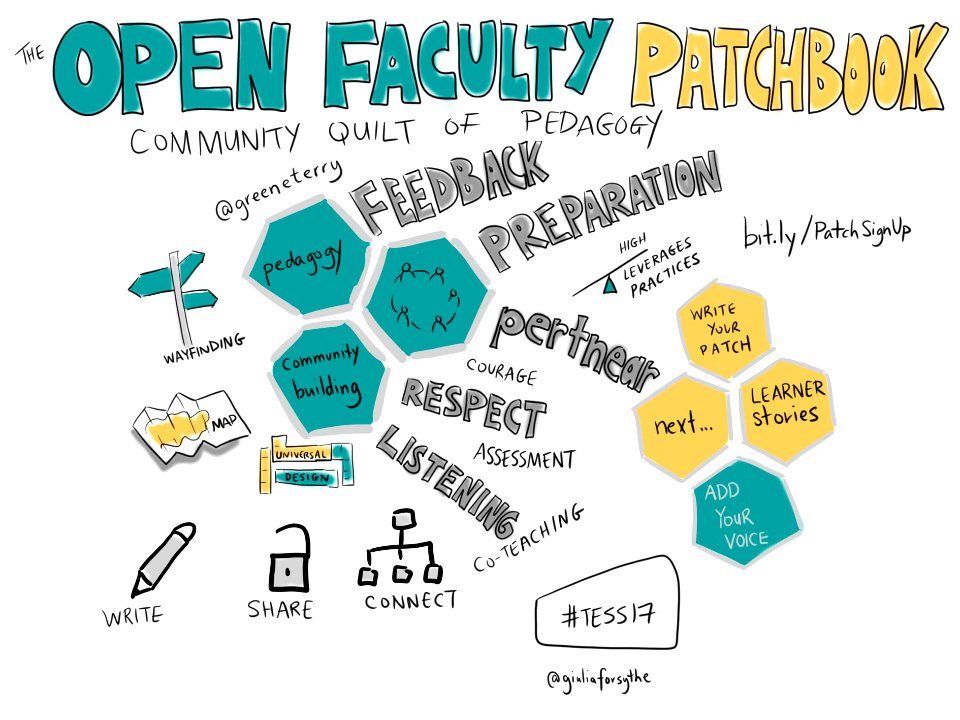 THE OPEN FACULTY PATCHBOOK
COMMUNITY QUILT OF PEDAGOGY
@greeneterry
FEEDBACK
PREPARATION
pedagogy
bit.ly/PatchSignUp
HIGH
LEVERAGES
PRACTICES
WAYFINDING
pertnear
WRITE
YOUR
PATCH
Community
building
COURAGE
RESPECT
next...
LEARNER
stories
MAP
UNIVERSAL
DESIGN
LISTENING
ASSESSMENT
CO-TEACHING
ADD
YOUR
VOICE
WRITE
SHARE
CONNECT
#TESS17
@giuliaforsythe